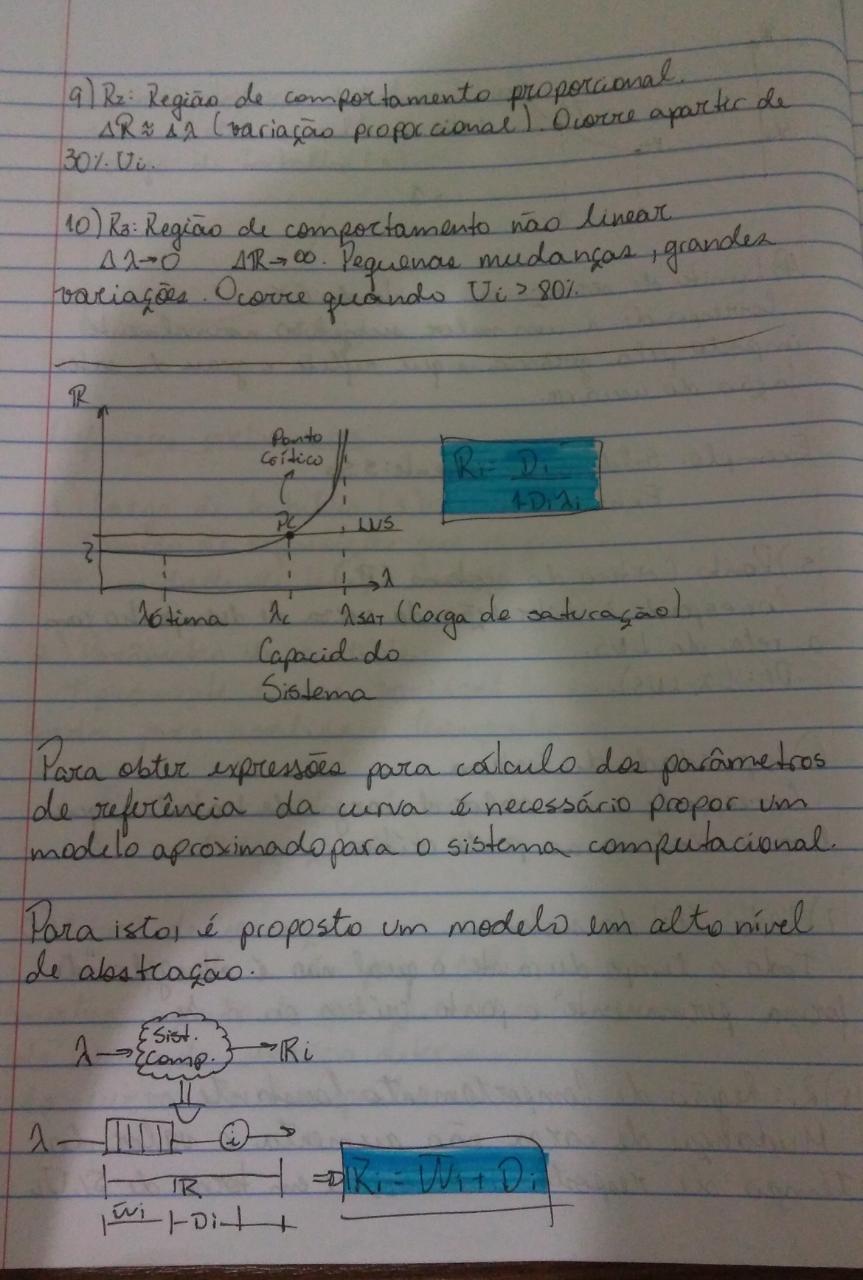 9) R2: Região de comportamento proporcional.
ΔR ≈ Δλ (variação proporcional). Ocorre apartir de
30% Ui.
10) R3: Região de comportamento não linear
Δλ→0 ΔR→∞. Pequenas mudanças, grandes
variações. Ocorre quando Ui > 80%.
R
Ponto
Crítico
Ri = Di
1-Diλi
PC
LUS
λ
λótima λc λSAT (Carga de saturação)
Capacid. do
Sistema
Para obter expressões para cálculo dos parâmetros
de referência da curva é necessário propor um
modelo aproximado para o sistema computacional.
Para isto, é proposto um modelo em alto nível
de abstração.
λ → Sist. Comp. → Ri
λ i
R
Wi Di
⇒ Ri = Wi + Di